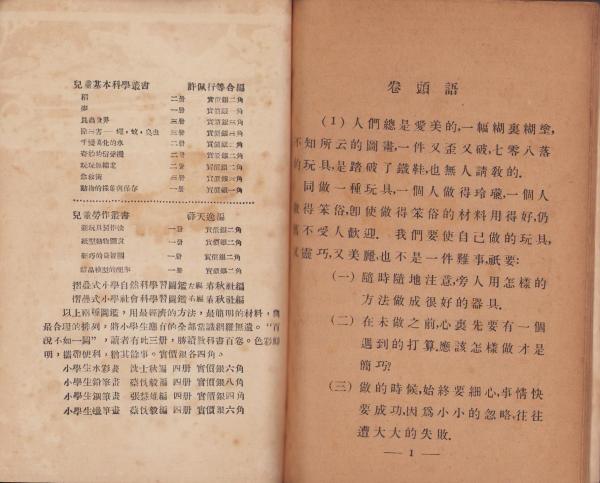 兒童基本科學叢書 許佩行等合編
稻 二册 實價銀二角
一册 實價銀一角
三册 實價銀三角
除三害——蠅，蚊，臭虫 三册 實價銀三角
千變萬化的水 二册 實價銀二角
二册 實價銀二角
二册 實價銀二角
急救術 三册 實價銀三角
動物的採集與保存 一册 實價銀一角
兒童勞作叢書 薛天逸編
一册 實價銀二角
紙型動物製法 一册 實價銀二角
一册 實價銀二角
一册 實價銀二角
摺疊式小學自然科學習圖鑑 春秋社編
摺疊式小學社會科學習圖鑑 春秋社編
以上兩種圖鑑，用最經濟的方法，最簡明的材料，
最合理的排列，將小學生應有的全部常識網羅無遺。“百
說不如一圖”，讀者有此三册，勝讀教科書百卷。色彩
明，攜帶便利，猶其餘事。實價銀各四角。
小學生水彩畫 沈士秋編 四册 實價銀六角
小學生鉛筆畫 蔡忱毅編 四册 實價銀八角
小學生鋼筆畫 張慧雄編 四册 實價銀四角
小學生蠟筆畫 蔡忱毅編 四册 實價銀六角
卷頭語
(1) 人們總是愛美的，一幅糊裏糊塗，
不知所云的圖畫，一件又歪又破，七零八落
的玩具，是踏破了鐵鞋，也無人請教的．
同做一種玩具，一個人做得玲瓏，一個人
做得笨俗，卽使做得笨俗的材料用得好，仍
不受人歡迎． 我們要使自己做的玩具，
又靈巧，又美麗，也不是一件難事，祇要：
(一) 隨時隨地注意，旁人用怎樣的
方法做成很好的器具．
(二) 在未做之前，心裏先要有一個
遇到的打算，應該怎樣做才是
簡巧？
(三) 做的時候，始終要細心，事情快
要成功，因爲小小的忽略，往往
遭大大的失敗．
— 1 —